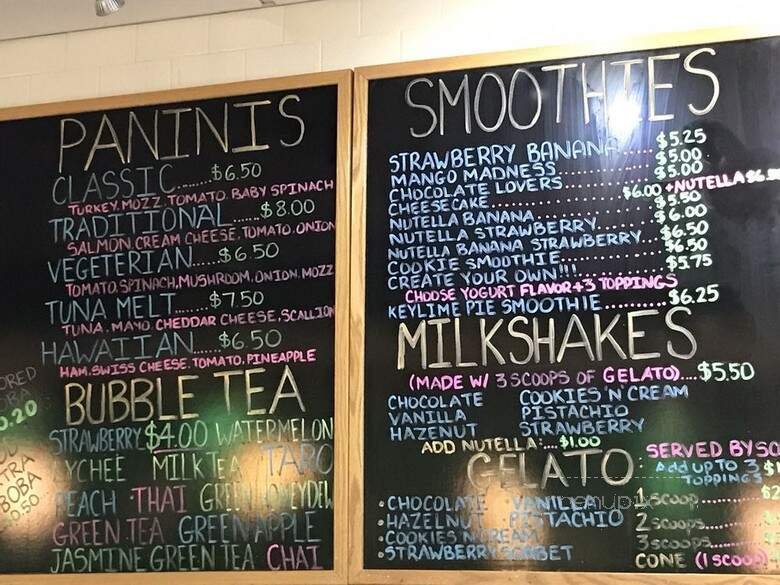 PANINIS
CLASSIC......$6.50
TURKEY. MOZZ. TOMATO. BABY SPINACH
TRADITIONAL......$8.00
SALMON. CREAM CHEESE. TOMATO. ONION
VEGETERIAN.....$6.50
TOMATO. SPINACH, MUSHROOM, ONION, MOZZ
TUNA MELT.....$7.50
TUNA. MAYO. CHEDDAR CHEESE. SCALLION
HAWAIIAN.....$6.50
HAM. SWISS CHEESE. TOMATO. PINEAPPLE
BUBBLE TEA
STRAWBERRY $4.00 WATERMELON
LYCHEE MILK TEA TARO
PEACH THAI GREEN HONEYDEW
GREEN TEA GREEN APPLE
JASMINE GREEN TEA CHAI
BOBA
SMOOTHIES
STRAWBERRY BANANA......$5.25
MANGO MADNESS..........$5.00
CHOCOLATE LOVERS..........$5.00
CHEESECAKE..........$6.00 +NUTELLA $6.50
NUTELLA BANANA..........$5.50
NUTELLA STRAWBERRY..........$6.00
NUTELLA BANANA STRAWBERRY....$6.50
COOKIE SMOOTHIE..........$6.50
CREATE YOUR OWN!!!..........$5.75
CHOOSE YOGURT FLAVOR +3 TOPPINGS
KEYLIME PIE SMOOTHIE..........$6.25
MILKSHAKES
(MADE W/ 3 SCOOPS OF GELATO)....$5.50
CHOCOLATE COOKIES 'N CREAM
VANILLA PISTACHIO
HAZENUT STRAWBERRY
ADD NUTELLA:....$1.00
GELATO
SERVED BY SC
Add UP TO 3
TOPPINGS
• CHOCOLATE VANILLA 1 scoop
• HAZELNUT PISTACHIO 2 scoops
• COOKIES N CREAM 3 scoops
• STRAWBERRY SORBET CONE (1 SCOOP)